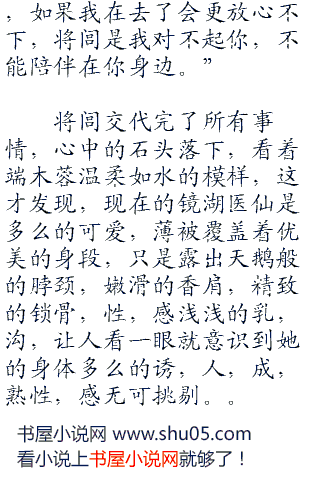 ，如果我在去了会更放心不
下，将闾是我对不起你，不
能陪伴在你身边。”
将闾交代完了所有事
情，心中的石头落下，看着
端木蓉温柔如水的模样，这
才发现，现在的镜湖医仙是
多么的可爱，薄被覆盖着优
美的身段，只是露出天鹅般
的脖颈，嫩滑的香肩，精致
的锁骨，性，感浅浅的乳，
沟，让人看一眼就意识到她
的身体多么的诱，人，成，
熟性，感无可挑剔。。
书屋小说网 www.shu05.com
看小说上书屋小说网就够了！